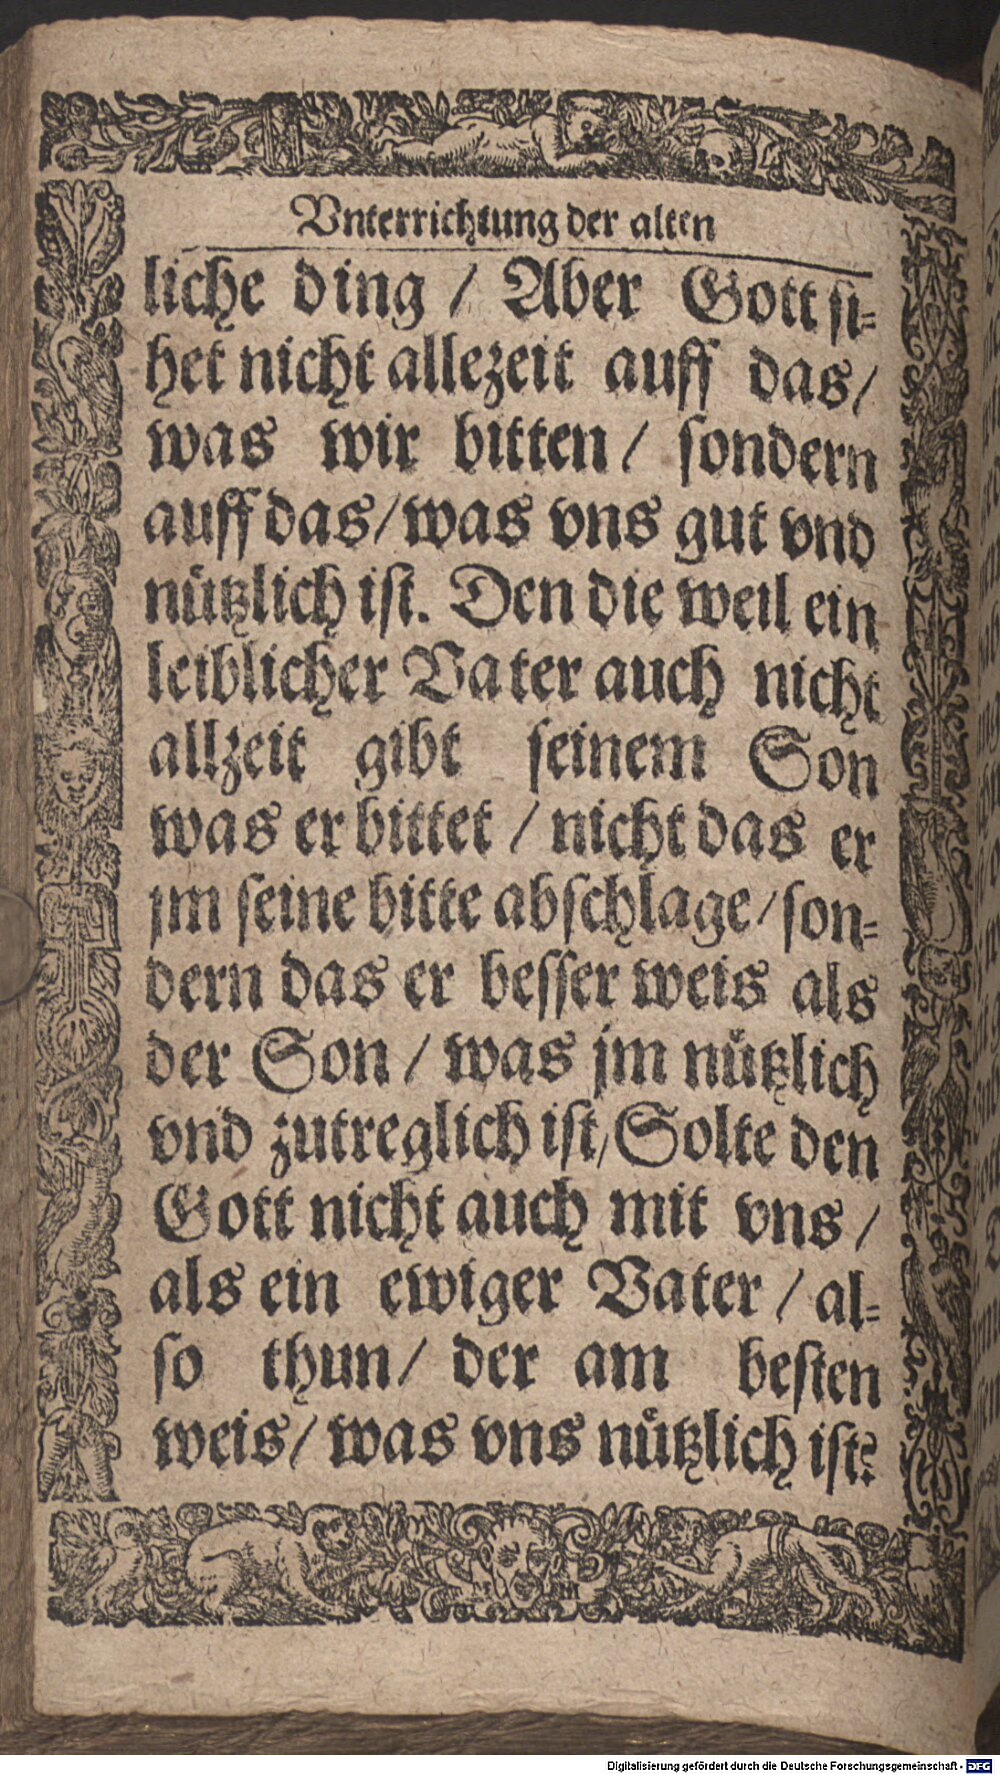 Vnterrichtung der alten
liche ding / Aber Gott si-
het nicht allezeit auff das/
was wir bitten / sondern
auff das/was vns gut vnd
nützlich ist. Den die weil ein
leiblicher Vater auch nicht
allzeit gibt seinem Son
was er bittet / nicht das er
jm seine bitte abschlage/son-
dern das er besser weis als
der Son / was jm nützlich
vnd zutreglich ist/Solte den
Gott nicht auch mit vns /
als ein ewiger Vater / al-
so thun/ der am besten
weis/ was vns nützlich ist?
Digitalisierung gefördert durch die Deutsche Forschungsgemeinschaft - DFG